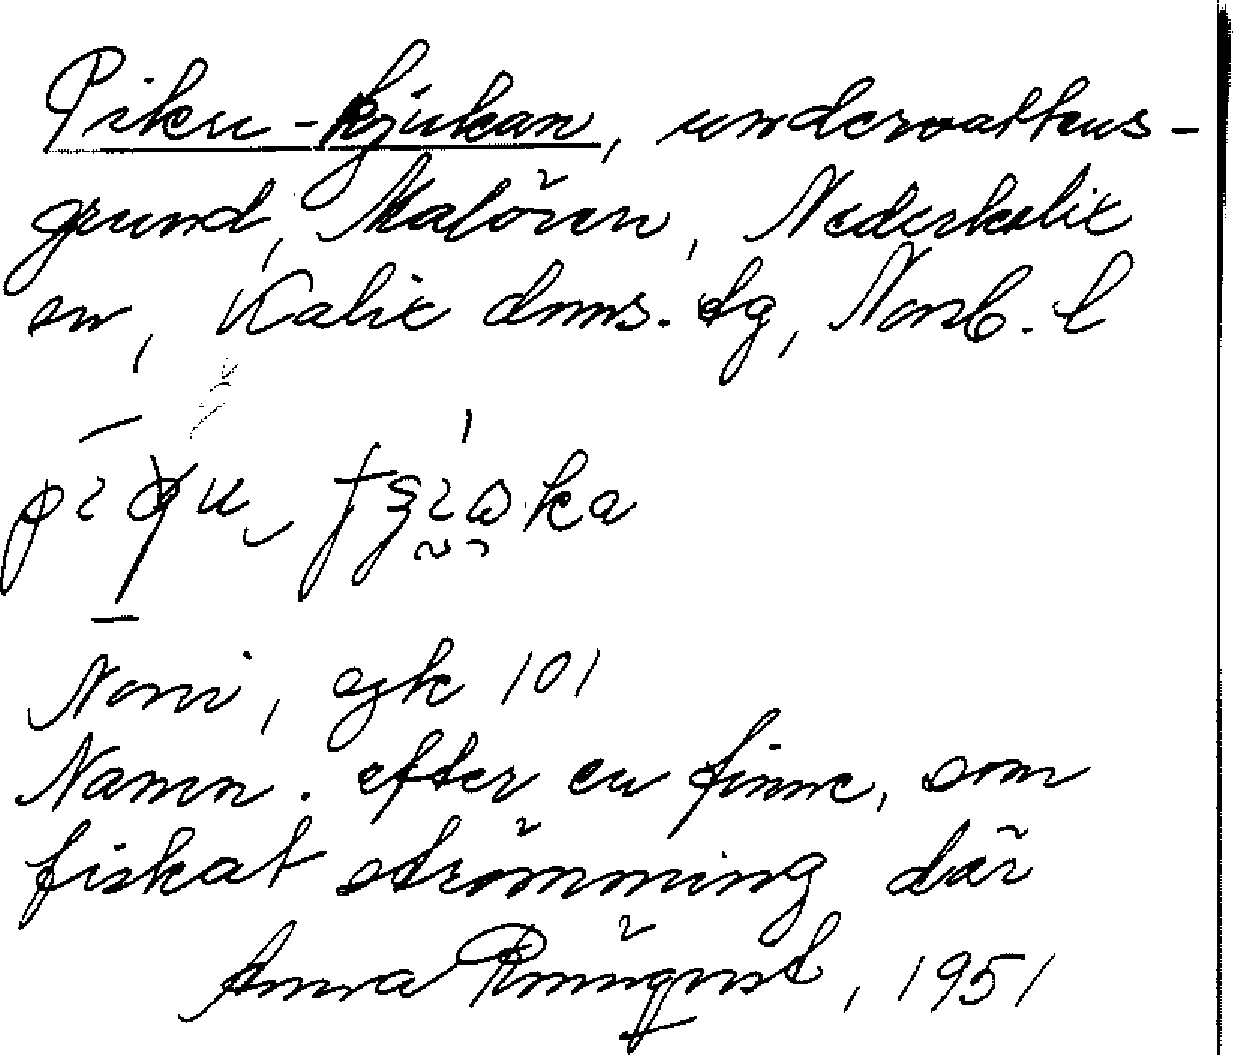 Piku-kjukan, undervattens-
grund, Malören, Nederkalix
sn, Kalix doms. dg, Norb. l
Nori, egk 101
Namn. efter en finne, som
fiskat strömming där
Anna Rönnqvist, 1951